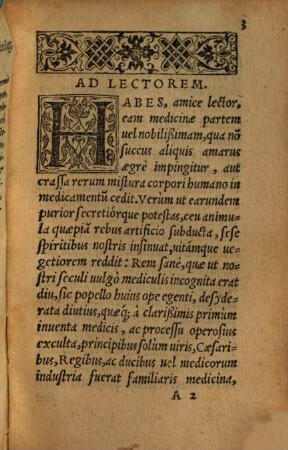 3
AD LECTOREM.
HABES, amice lector,
eam medicinæ partem
uel nobilißimam, qua nõ
succus aliquis amarus
ægrè impingitur, aut
crassa rerum mistura corpori humano in
medicamentũ cedit. Verum ut earundem
purior secretiórque potestas, ceu animu-
la quæpiã rebus artificio subducta, sese
spiritibus nostris insinuat, uitámque ue-
getiorem reddit: Rem sanè, quæ ut no-
stri seculi uulgò mediculis incognita erat
diu, sic popello huius ope egenti, desyde-
rata diutius, quæq́; à clarißimis primùm
inuenta medicis, ac processu operosius
exculta, principibus solùm uiris, Cæsari-
bus, Regibus, ac ducibus uel medicorum
industria fuerat familiaris medicina,
A 2